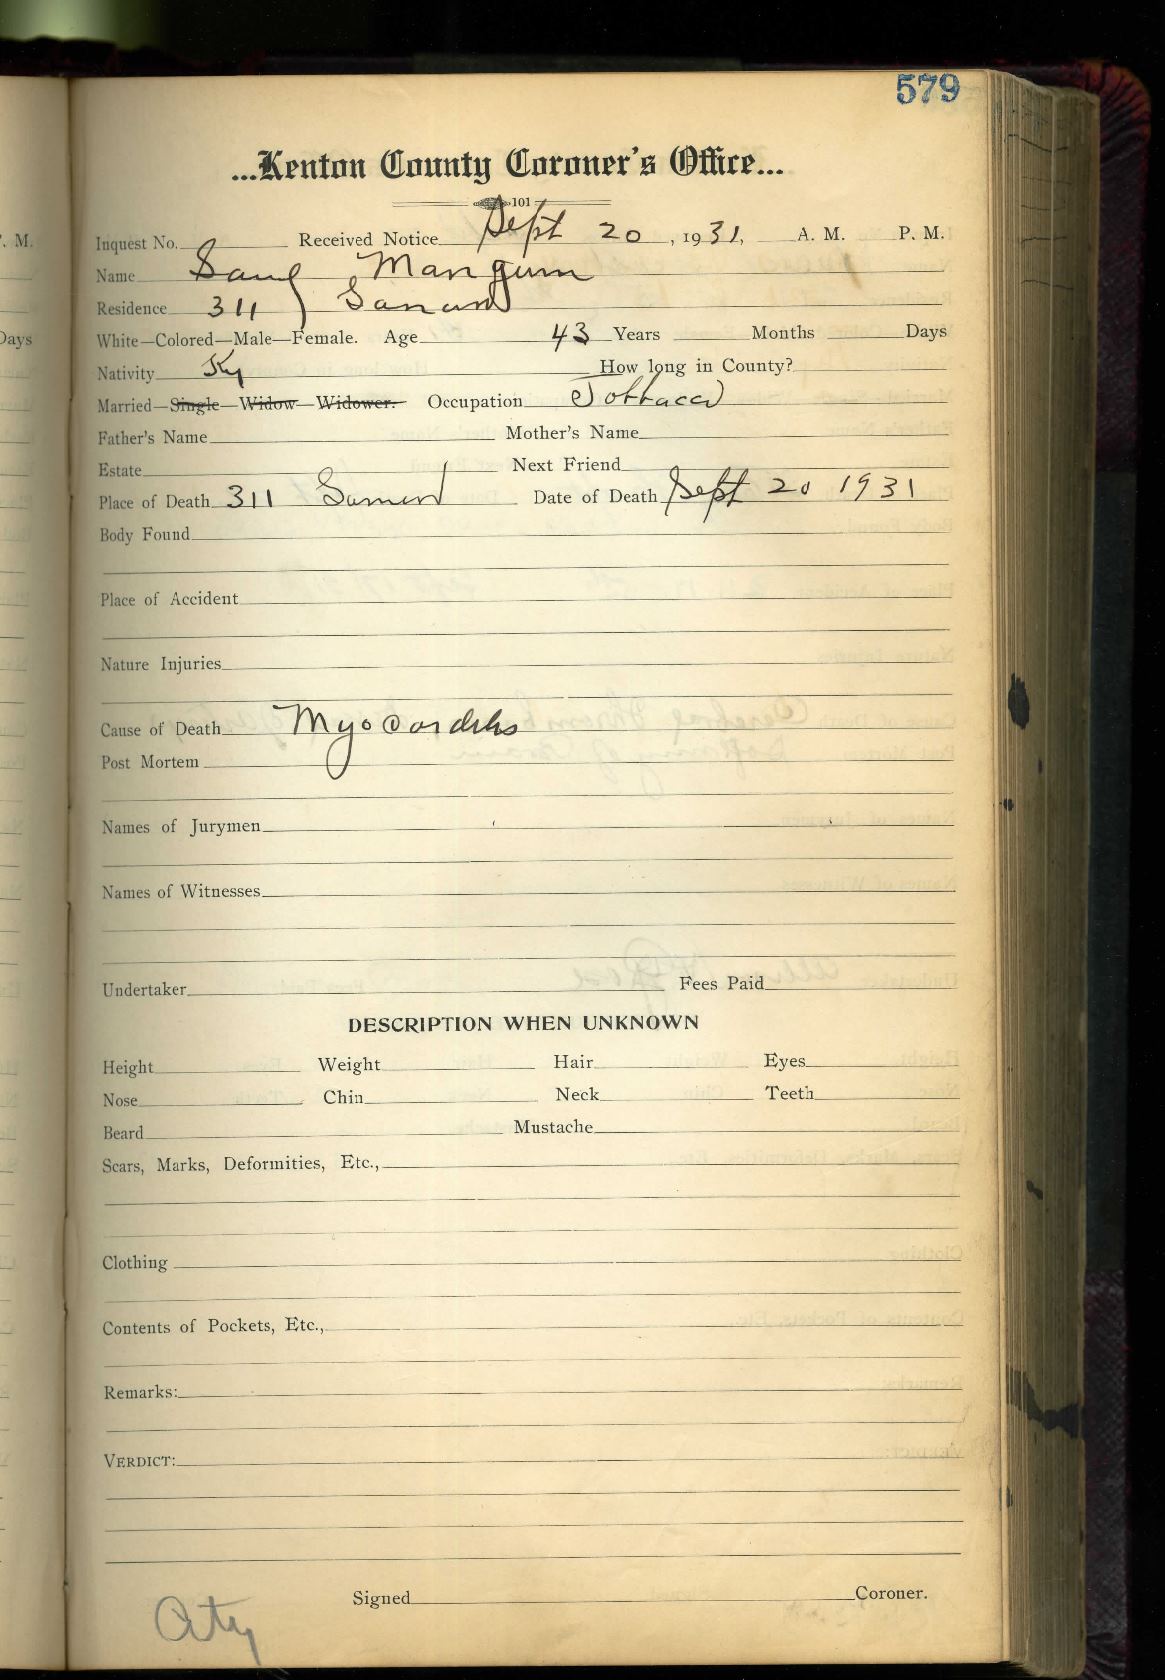 579
...Kenton County Coroner's Office...
101
Inquest No. Received Notice Sept 20, 1931, A. M. P. M.
Name Mangum
Residence 311
White—Colored—Male—Female. Age 43 Years Months Days
Nativity Ky How long in County?
Married—Single—Widow—Widower. Occupation Tobbacco
Father's Name Mother's Name
Estate Next Friend
Place of Death 311 Date of Death Sept 20 1931
Body Found
Place of Accident
Nature Injuries
Cause of Death Myocarditis
Post Mortem
Names of Jurymen
Names of Witnesses
Undertaker Fees Paid
DESCRIPTION WHEN UNKNOWN
Height Weight Hair Eyes
Nose Chin Neck Teeth
Beard Mustache
Scars, Marks, Deformities, Etc.,
Clothing
Contents of Pockets, Etc.,
Remarks:
VERDICT:
Signed Coroner.
City